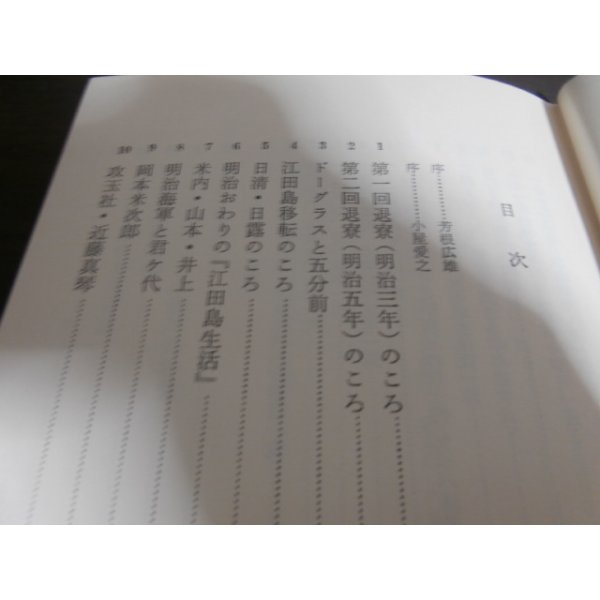 目次
序………芳根広雄
序………小屋愛之
1 第一回退寮(明治三年)のころ
2 第二回退寮(明治五年)のころ
3 ドーグラスと五分前
4 江田島移転のころ
5 日清・日露のころ
6 明治おわりの『江田島生活』
7 米内・山本・井上
8 明治海軍と君ケ代
9 岡本米次郎
10 攻玉社・近藤真琴